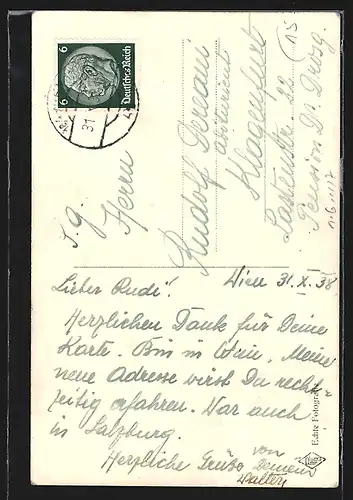 6 Deutsches Reich 6
31
S. g.
Herrn
Rudolf Dereani
Abiturient
Klagenfurt
Lastenstr. 22
Pension Dr. Drosg.
15
Wien 31. X. 38.
Lieber Rudi!
Herzlichen Dank für Deine
Karte. Bin in Wien. Meine
neue Adresse wirst Du recht-
zeitig erfahren. War auch
in Salzburg.
Herzliche Grüße von
Deinem
Walter
Echte Fotografie